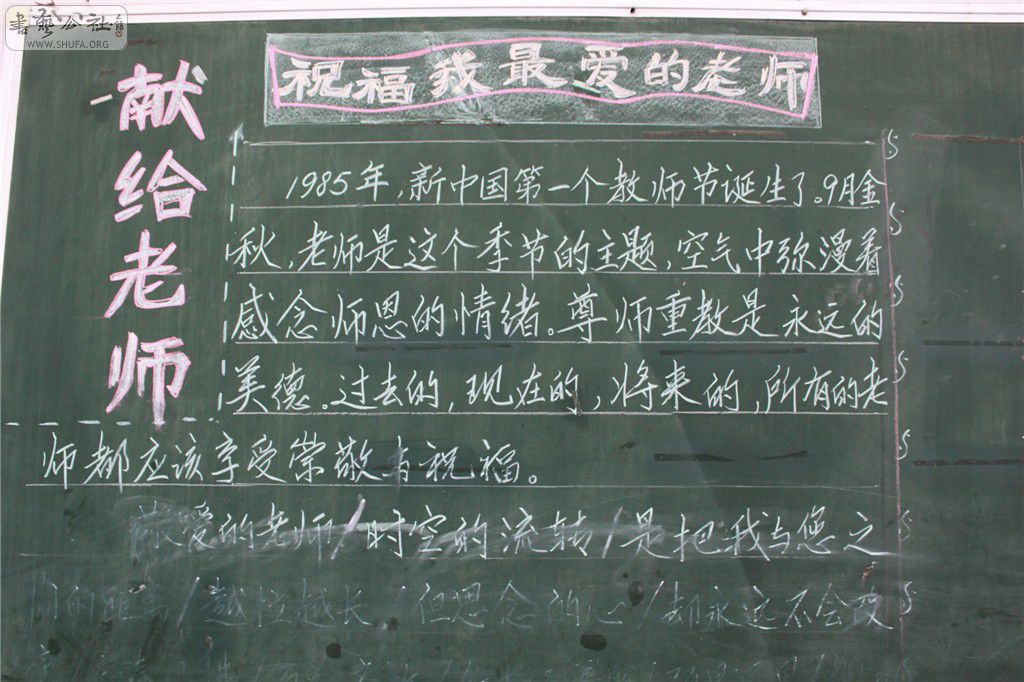 書藝公社
WWW.SHUFA.ORG
献给老师
祝福我最爱的老师
1985年,新中国第一个教师节诞生了。9月金
秋,老师是这个季节的主题,空气中弥漫着
感念师恩的情绪。尊师重教是永远的
美德。过去的,现在的,将来的,所有的老
师都应该享受崇敬与祝福。
敬爱的老师/时空的流转/是把我与您之
间的距离/越拉越长/但思念的心/却永远不会改